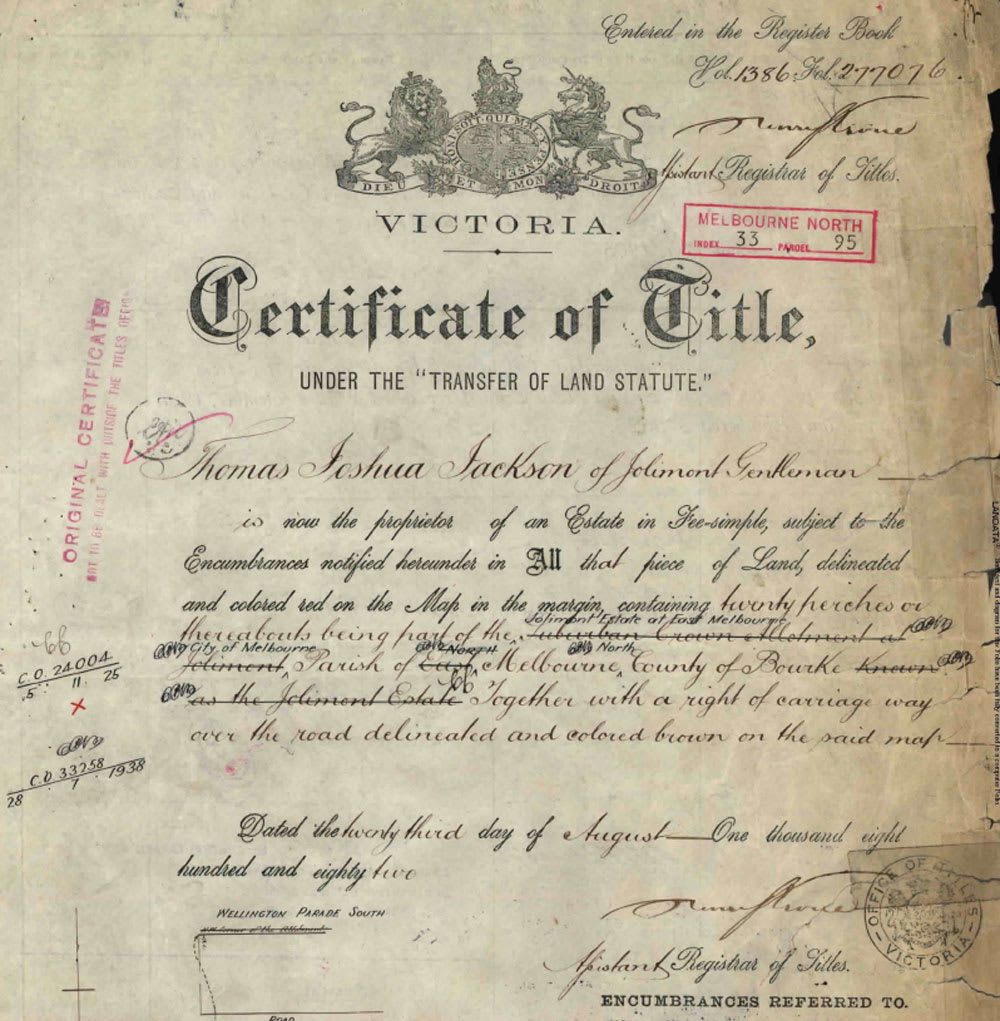 Entered in the Register Book
Vol. 1386 Fol. 277076.
HONI SOIT QUI MAL Y PENSE
DIEU ET MON DROIT
Assistant Registrar of Titles.
VICTORIA.
MELBOURNE NORTH
INDEX 33 PARCEL 95
Certificate of Title,
UNDER THE "TRANSFER OF LAND STATUTE."
ORIGINAL CERTIFICATE
NOT TO BE DEALT WITH OUTSIDE THE TITLES OFFICE
Thomas Joshua Jackson of Jolimont Gentleman
is now the proprietor of an Estate in Fee-simple, subject to the
Encumbrances notified hereunder in All that piece of Land, delineated
and colored red on the Map in the margin, containing twenty perches or
Jolimont Estate at East Melbourne
thereabouts being part of the Suburban Crown Allotment at
City of Melbourne NORTH North
Jolimont, Parish of East, Melbourne, County of Bourke Known
as the Jolimont Estate Together with a right of carriage way
over the road delineated and colored brown on the said map
C.O. 24004
5 11 25
C.O 33258
28 1 1938
Dated the twenty third day of August One thousand eight
hundred and eighty two
WELLINGTON PARADE SOUTH
ROAD
OFFICE OF TITLES
VICTORIA
Assistant Registrar of Titles.
ENCUMBRANCES REFERRED TO.